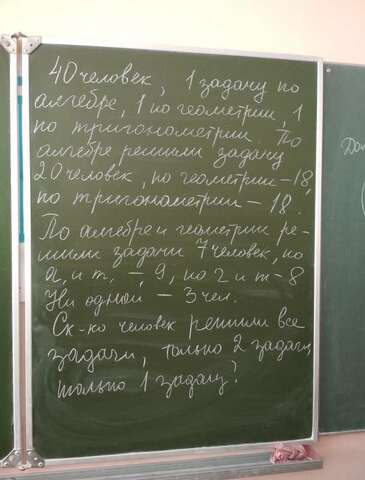 40 человек, 1 задачу по
алгебре, 1 по геометрии, 1
по тригонометрии. По
алгебре решили задачу
20 человек, по геометрии – 18,
по тригонометрии – 18.
По алгебре и геометрии ре-
шили задачи 7 человек, по
а. и т. – 9, по г и т – 8
Ни одной – 3 чел.
Ск-ко человек решили все
задачи, только 2 задачи,
только 1 задачу?